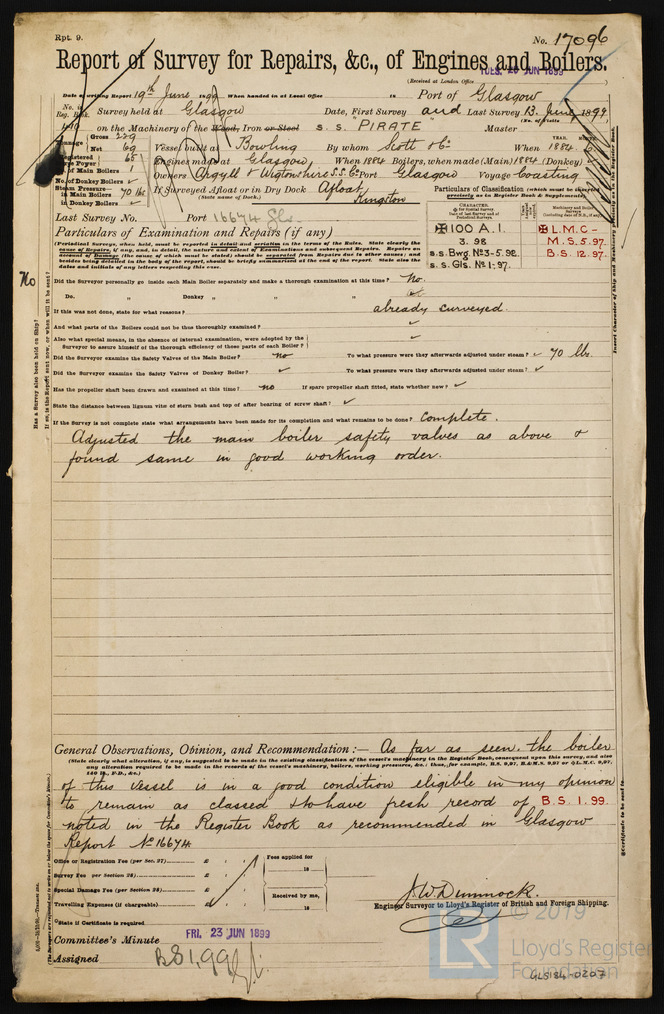 Rpt. 9.
No. 17096
Report of Survey for Repairs, &c., of Engines and Boilers.
(Received at London Office TUES. 20 JUN 1899
Date of writing Report 19th June 1899 When handed in at Local Office Port of Glasgow
No. in Reg. Book. Survey held at Glasgow Date, First Survey and Last Survey 13. June 1899
(No. of Visits
on the Machinery of the Wood, Iron or Steel s. s. "PIRATE" Master
Tonnage Gross 229 Net 69
Vessel built at Bowling By whom Scott & Co When 1884
Registered Horse Power 65 Engines made at Glasgow When 1884 Boilers, when made (Main) 1884 (Donkey) ✓
No. of Main Boilers 1 Owners Argyll & Wigtonshire S.S. Co Port Glasgow Voyage Coasting
No. of Donkey Boilers ✓
Steam Pressure in Main Boilers 70 lbs If Surveyed Afloat or in Dry Dock Afloat Kingston
(State name of Dock.)
in Donkey Boilers ✓
Particulars of Classification (which must be inserted precisely as in Register Book & Supplements).
Last Survey No. Port 16674 Gls
✠100 A.1.
3. 98
s.s. Bwg. No 3-5.92
s.s. Gls. No 1-97.
✠L.M.C-
M.S. 5.97.
B.S. 12.97.
Particulars of Examination and Repairs (if any)
(Periodical Surveys, when held, must be reported in detail and seriatim in the terms of the Rules. State clearly the cause of Repairs, if any, and, in detail, the nature and extent of Examinations and subsequent Repairs. Repairs on account of Damage (the cause of which must be stated) should be separated from Repairs due to other causes; and besides being detailed in the body of the report, should be briefly summarised at the end of the report. State also the dates and initials of any letters respecting this case.
Did the Surveyor personally go inside each Main Boiler separately and make a thorough examination at this time? No.
Do. " Donkey " " "
If this was not done, state for what reasons? already surveyed.
And what parts of the Boilers could not be thus thoroughly examined? ✓
Also what special means, in the absence of internal examination, were adopted by the Surveyor to assure himself of the thorough efficiency of those parts of each Boiler? ✓
Did the Surveyor examine the Safety Valves of the Main Boiler? no To what pressure were they afterwards adjusted under steam? ✓ 70 lbs.
Did the Surveyor examine the Safety Valves of Donkey Boiler? ✓ To what pressure were they afterwards adjusted under steam? ✓
Has the propeller shaft been drawn and examined at this time? no If spare propeller shaft fitted, state whether new? ✓
State the distance between lignum vitæ of stern bush and top of after bearing of screw shaft? ✓
If the Survey is not complete state what arrangements have been made for its completion and what remains to be done? Complete.
Adjusted the main boiler safety valves as above &
found same in good working order.
No
Has a Survey also been held on Ship?
General Observations, Opinion, and Recommendation:— As far as seen. the boiler
(State clearly what alteration, if any, is suggested to be made in the existing classification of the vessel's machinery in the Register Book, consequent upon this survey, and also any alteration required to be made in the records of the vessel's machinery, boilers, working pressures, &c.: thus, for example, B.S. 9,97, B.&M.S. 9,97 or L.M.C. 9,97, 140 lb., F.D., &c.)
of this vessel is in a good condition eligible in my opinion
to remain as classed & to have fresh record of B.S. 1.99.
noted in the Register Book as recommended in Glasgow
Report No 16674.
Office or Registration Fee (per Sec. 27) £
Survey Fee (per Section 28) £
Special Damage Fee (per Section 28) £
Travelling Expenses (if chargeable) £
Fees applied for
18
Received by me,
18
J. W. Dimmock.
Engineer Surveyor to Lloyd's Register of British and Foreign Shipping.
State if Certificate is required
Committee's Minute FRI. 23 JUN 1899
Assigned BS 1,99
LR © 2019
Lloyd's Register Foundation
GLS184-0207